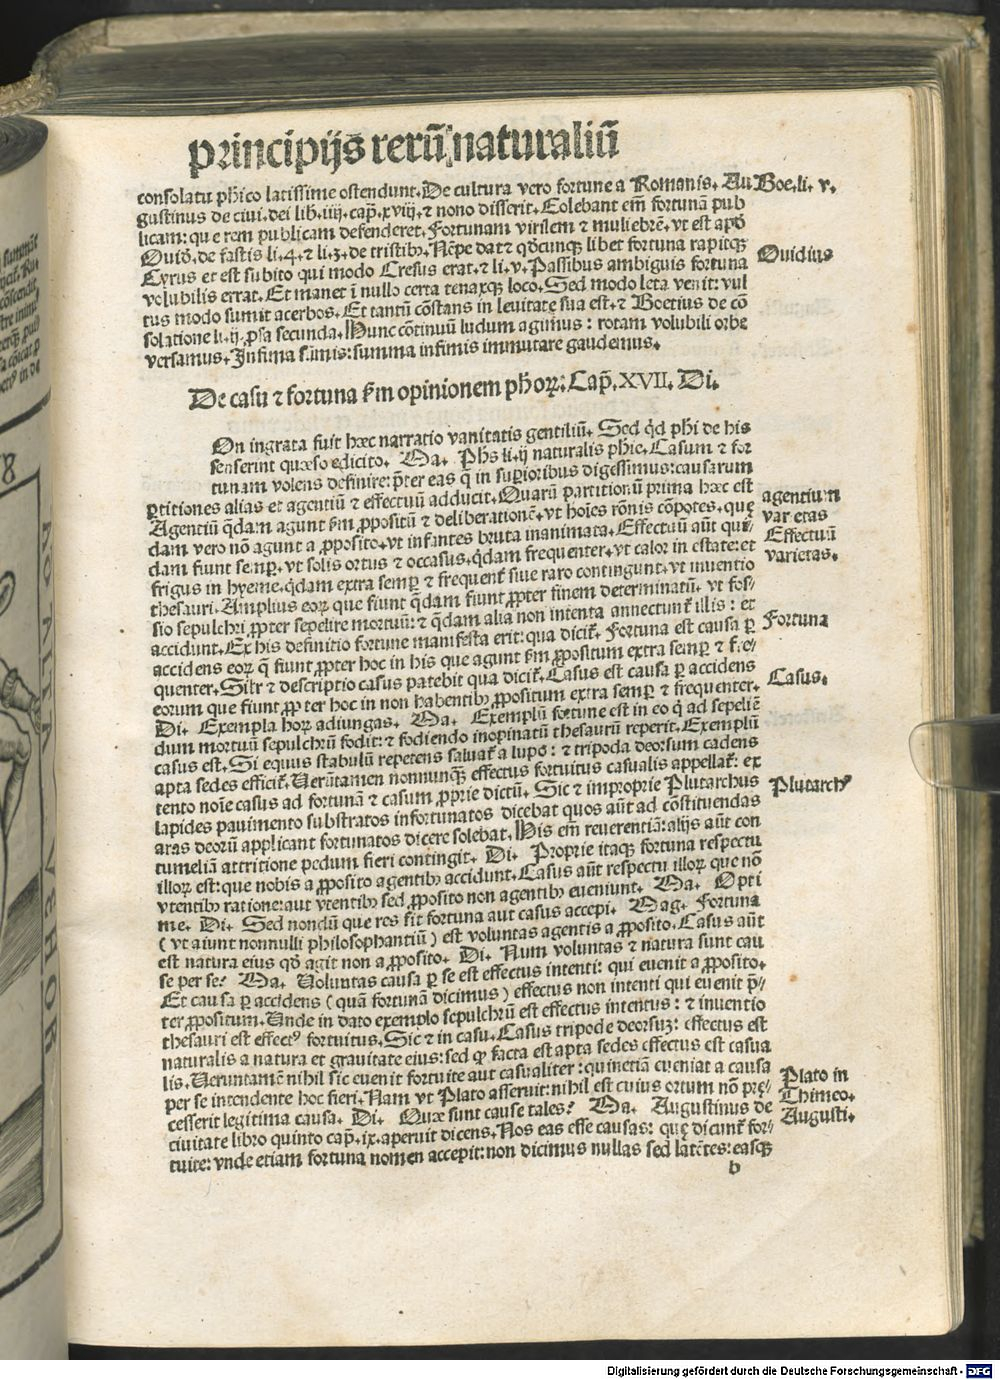 principijs rerū naturaliū
consolatu phico latissime ostendunt. De cultura vero fortune a Romanis. Au
gustinus de ciui. dei lib. iiij. cap̄. xviij. ⁊ nono disserit. Colebant em̄ fortunā pub
licam: que rem publicam defenderet. Fortunam virilem ⁊ muliebrē. vt est apd̄
Ouid̄. de fastis li. 4. ⁊ li. 3. de tristibꝰ. Nēpe dat ⁊ qd̄cunqꝫ libet fortuna rapitqꝫ
Cyrus et est subito qui modo Cresus erat. ⁊ li. v. Passibus ambiguis fortuna
volubilis errat. Et manet ī nullo certa tenaxqꝫ loco. Sed modo leta venit: vul
tus modo sumit acerbos. Et tantū cōstans in leuitate sua est. ⁊ Boetius de cō
solatione li. ij. ꝓsa secunda. Hunc cōtinuū ludum agimus: rotam volubili orbe
versamus. Infima sūmis: summa infimis immutare gaudemus.
Boe. li. v.
Ouidius
De casu ⁊ fortuna ẜm opinionem phoꝝ. Cap̄. XVII. Di.
On ingrata fuit hæc narratio vanitatis gentiliū. Sed qd̄ phi de his
senserint quæso edicito. Ma. Phs li. ij naturalis phie. Casum ⁊ for
tunam volens definire: p̄ter eas q̄ in suꝑioribus digessimus: causarum
ꝑtitiones alias et agentiū ⁊ effectuū adducit. Quarū partitionū prima hæc est
Agentiū qd̄am agunt ẜm ꝓpositū ⁊ deliberationē. vt hoīes rōnis cōpotes. quę
dam vero nō agunt a ꝓposito. vt infantes bruta inanimata. Effectuū aūt quę/
dam fiunt semꝑ. vt solis ortus ⁊ occasus. qd̄am frequenter. vt calor in estate: et
frigus in hyeme. qd̄am extra semꝑ ⁊ frequent̄ siue raro contingunt. vt inuentio
thesauri. Amplius eoꝝ que fiunt qd̄am fiunt ꝓpter finem determinatū. vt fos/
sio sepulchri ꝓpter sepelire mortuū: ⁊ qd̄am alia non intenta annectunt̄ illis: et
accidunt. Ex his definitio fortune manifesta erit: qua dicit̄. Fortuna est causa ꝑ
accidens eoꝝ q̄ fiunt ꝓpter hoc in his que agunt ẜm ꝓpositum extra semꝑ ⁊ fre/
quenter. Silr ⁊ descriptio casus patebit qua dicit̄. Casus est causa ꝑ accidens
eorum que fiunt ꝓpter hoc in non habentibꝰ ꝓpositum extra semꝑ ⁊ frequenter.
Di. Exempla hoꝝ adiungas. Ma. Exemplū fortune est in eo q̄ ad sepeliē
dum mortuū sepulchrū fodit: ⁊ fodiendo inopinatū thesaurū reperit. Exemplū
casus est. Si equus stabulū repetens saluat̄ a lupo: ⁊ tripoda deorsum cadens
apta sedes efficit̄. Verūtamen nonnunqꝫ effectus fortuitus casualis appellat̄: ex
tento noīe casus ad fortunā ⁊ casum ꝓprie dictū. Sic ⁊ improprie Plutarchus
lapides pauimento substratos infortunatos dicebat quos aūt ad cōstituendas
aras deorū applicant fortunatos dicere solebat. His em̄ reuerentiā: alijs aūt con
tumeliā attritione pedum fieri contingit. Di. Proprie itaqꝫ fortuna respectu
illoꝝ est: que nobis a ꝓposito agentibꝰ accidunt. Casus aūt respectu illoꝝ que nō
vtentibꝰ ratione: aut vtentibꝰ sed ꝓposito non agentibꝰ eueniunt. Ma. Opti
me. Di. Sed nondū que res sit fortuna aut casus accepi. Mag. Fortuna
(vt aiunt nonnulli philosophantiū) est voluntas agentis a ꝓposito. Casus aūt
est natura eius qd̄ agit non a ꝓposito. Di. Num voluntas ⁊ natura sunt cau
se per se? Ma. Voluntas causa ꝑ se est effectus intenti: qui euenit a ꝓposito.
Et causa ꝑ accidens (quā fortunā dicimus) effectus non intenti qui euenit p̄/
ter ꝓpositum. Vnde in dato exemplo sepulchrū est effectus intentus: ⁊ inuentio
thesauri est effectꝰ fortuitus. Sic ⁊ in casu. Casus tripode deorsuꝫ: effectus est
naturalis a natura et grauitate eius: sed ꝙ facta est apta sedes effectus est casua
lis. Veruntamē nihil sic euenit fortuite aut casualiter: quinetiā eueniat a causa
per se intendente hoc fieri. Nam vt Plato asseruit: nihil est cuius ortum nō prę/
cesserit legitima causa. Di. Quæ sunt cause tales? Ma. Augustinus de
ciuitate libro quinto cap̄. ix. aperuit dicens. Nos eas esse causas: quę dicunt̄ for/
tuite: vnde etiam fortuna nomen accepit: non dicimus nullas sed latētes: easqꝫ
agentium
varietas
Effectuū
varietas.
Fortuna
Casus.
Plutarchꝰ
Plato in
Thimeo.
Augusti.
b
Digitalisierung gefördert durch die Deutsche Forschungsgemeinschaft - DFG